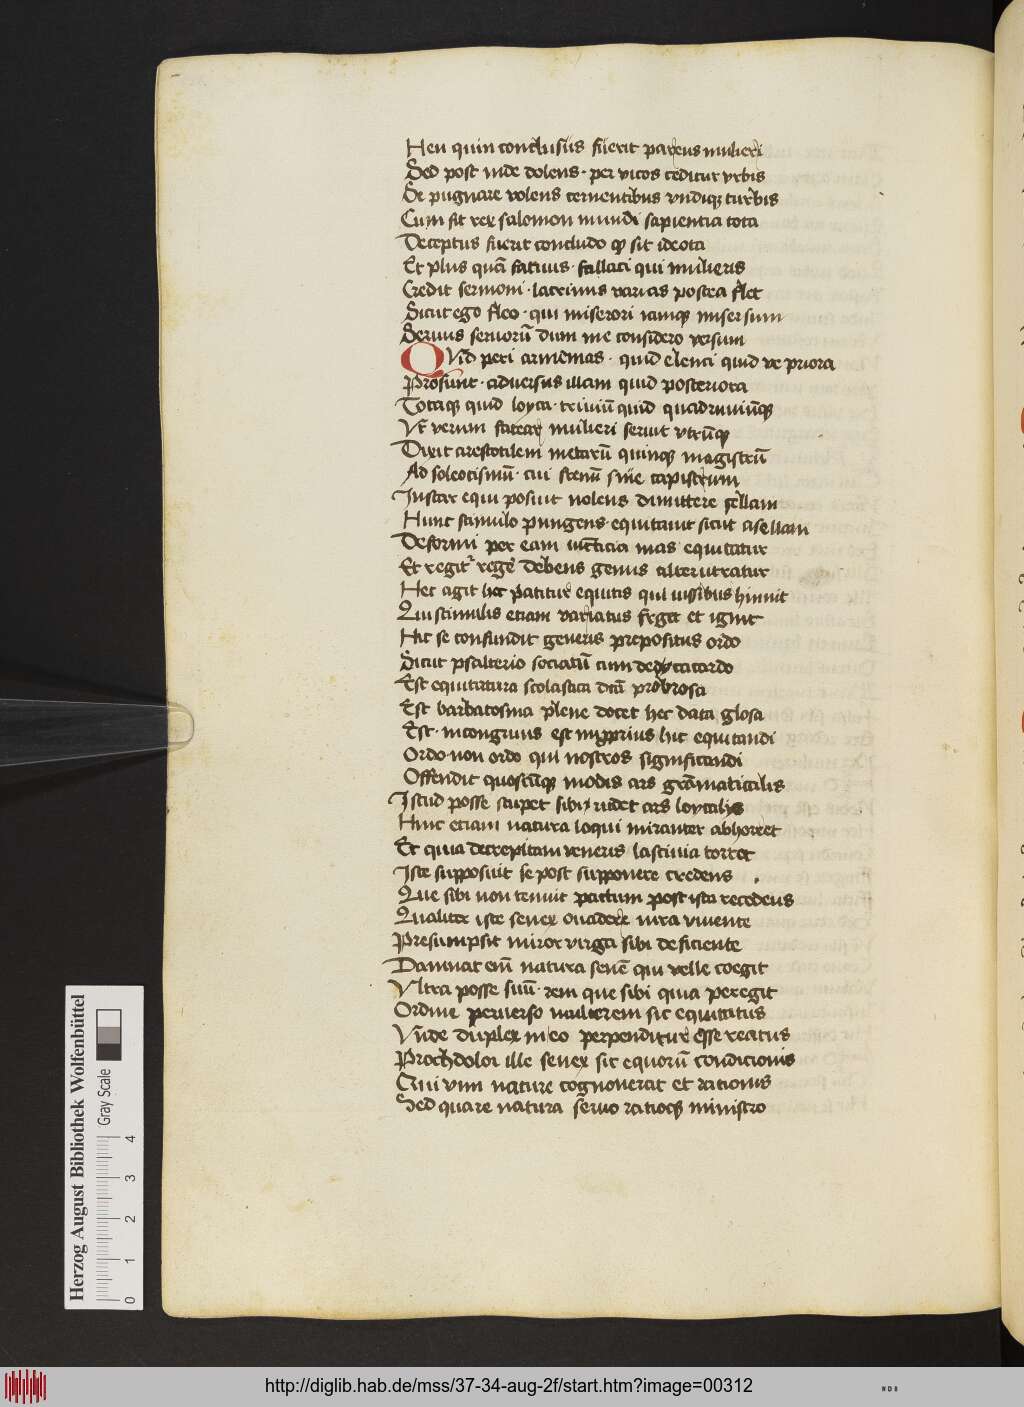 Heu quin conclusus fuerit parens mulieri
Sed post inde dolens · per vicos ceditur vrbis
Se pugnare volens cernentibus vndiq; turbis
Cum sit rex salomon mundi sapientia tota
Deceptus fuerit concludo ꝙ sit ideota
Et plus quā fatuus · fallaci qui mulieris
Credit sermoni · lacrimis varias postea flet
Sicut ego fleo · qui miserori iamq; miser sum
Seruus seruorū dum me considero versum
QVid peri armenias · quid elenci quid ve priora
Prosunt · aduersus illam quid posteriora
Totaq; quid loyca · triuiū quid quadruuiūq;
Vt verum fatear mulieri seruit vtrūq;
Dixit arestotilem metarū quinq; magistrū
Ad soleocismū · cui frenū sine capistrum
Instar equi posuit nolens dimittere sellam
Hunc stimulo pungens equitauit sicut asellam
Deformi per eam iuncticia mas equitatur
Et regitr regē debens genus alterutratur
Hec agit hic patitur equitis qui iussibus hinnit
Qui stimulis etiam variatus frgit et ignit
Hic se confundit generis prepositus ordo
Sicut psalterio sociatū cum decacordo
Est equitatura scolastica dcā probrosa
Est barbatosma plene docet hec data glosa
Est · incongruus est impprius hic equitandi
Ordo non ordo qui nostros significandi
Offendit quoscūq; modis ars grāmaticalis
Istud posse stupet sibi ridet ars loycalis
Hinc etiam natura loqui miranter abhorret
Et quia decrepitam veneris lasciuia torret
Iste supposuit se post supponere credens
Que sibi non tenuit pactum post ista recedens
Qualiter iste senex euadere iura viuente
Presumpsit miror virga sibi deficiente
Damnat em̄ natura senē qui velle coegit
Vltra posse suū · rem que sibi quia peregit
Ordine peruerso mulierem sic equitatus
Vnde duplex in eo perpenditur esse reatus
Proch dolor ille senex sic equorū condicionis
Qui vim nature cognouerat et rationis
Sed quare natura seruo ratioq; ministro
Herzog August Bibliothek Wolfenbüttel
Gray Scale
0 1 2 3 4
http://diglib.hab.de/mss/37-34-aug-2f/start.htm?image=00312